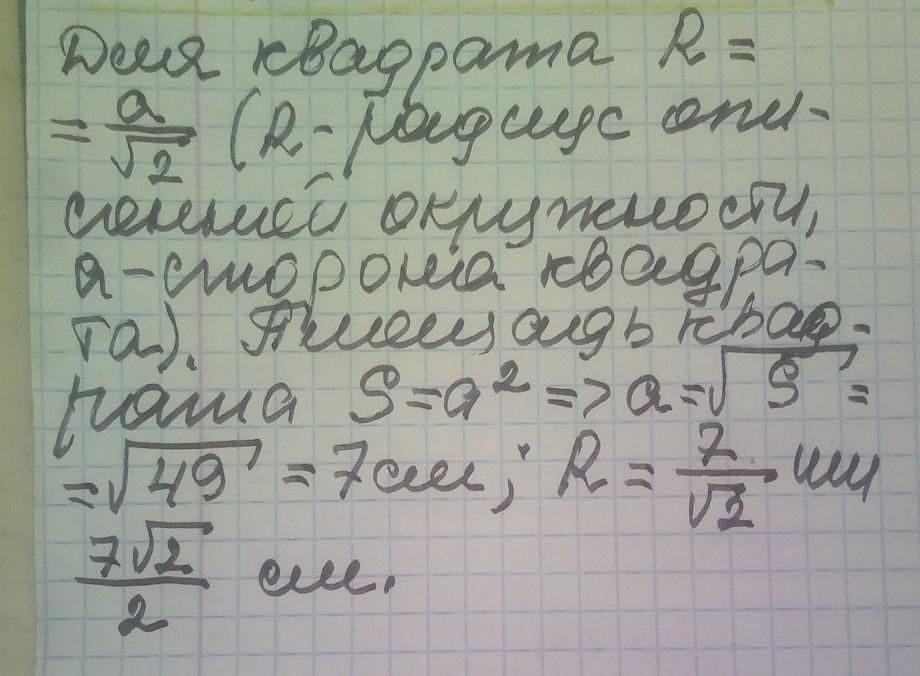 Для квадрата R =
= a/√2 (R - радиус опи-
санной окружности,
a - сторона квадра-
та). Площадь квад-
рата S = a² => a = √S =
= √49 = 7 см; R = 7/√2 или
7√2/2 см.